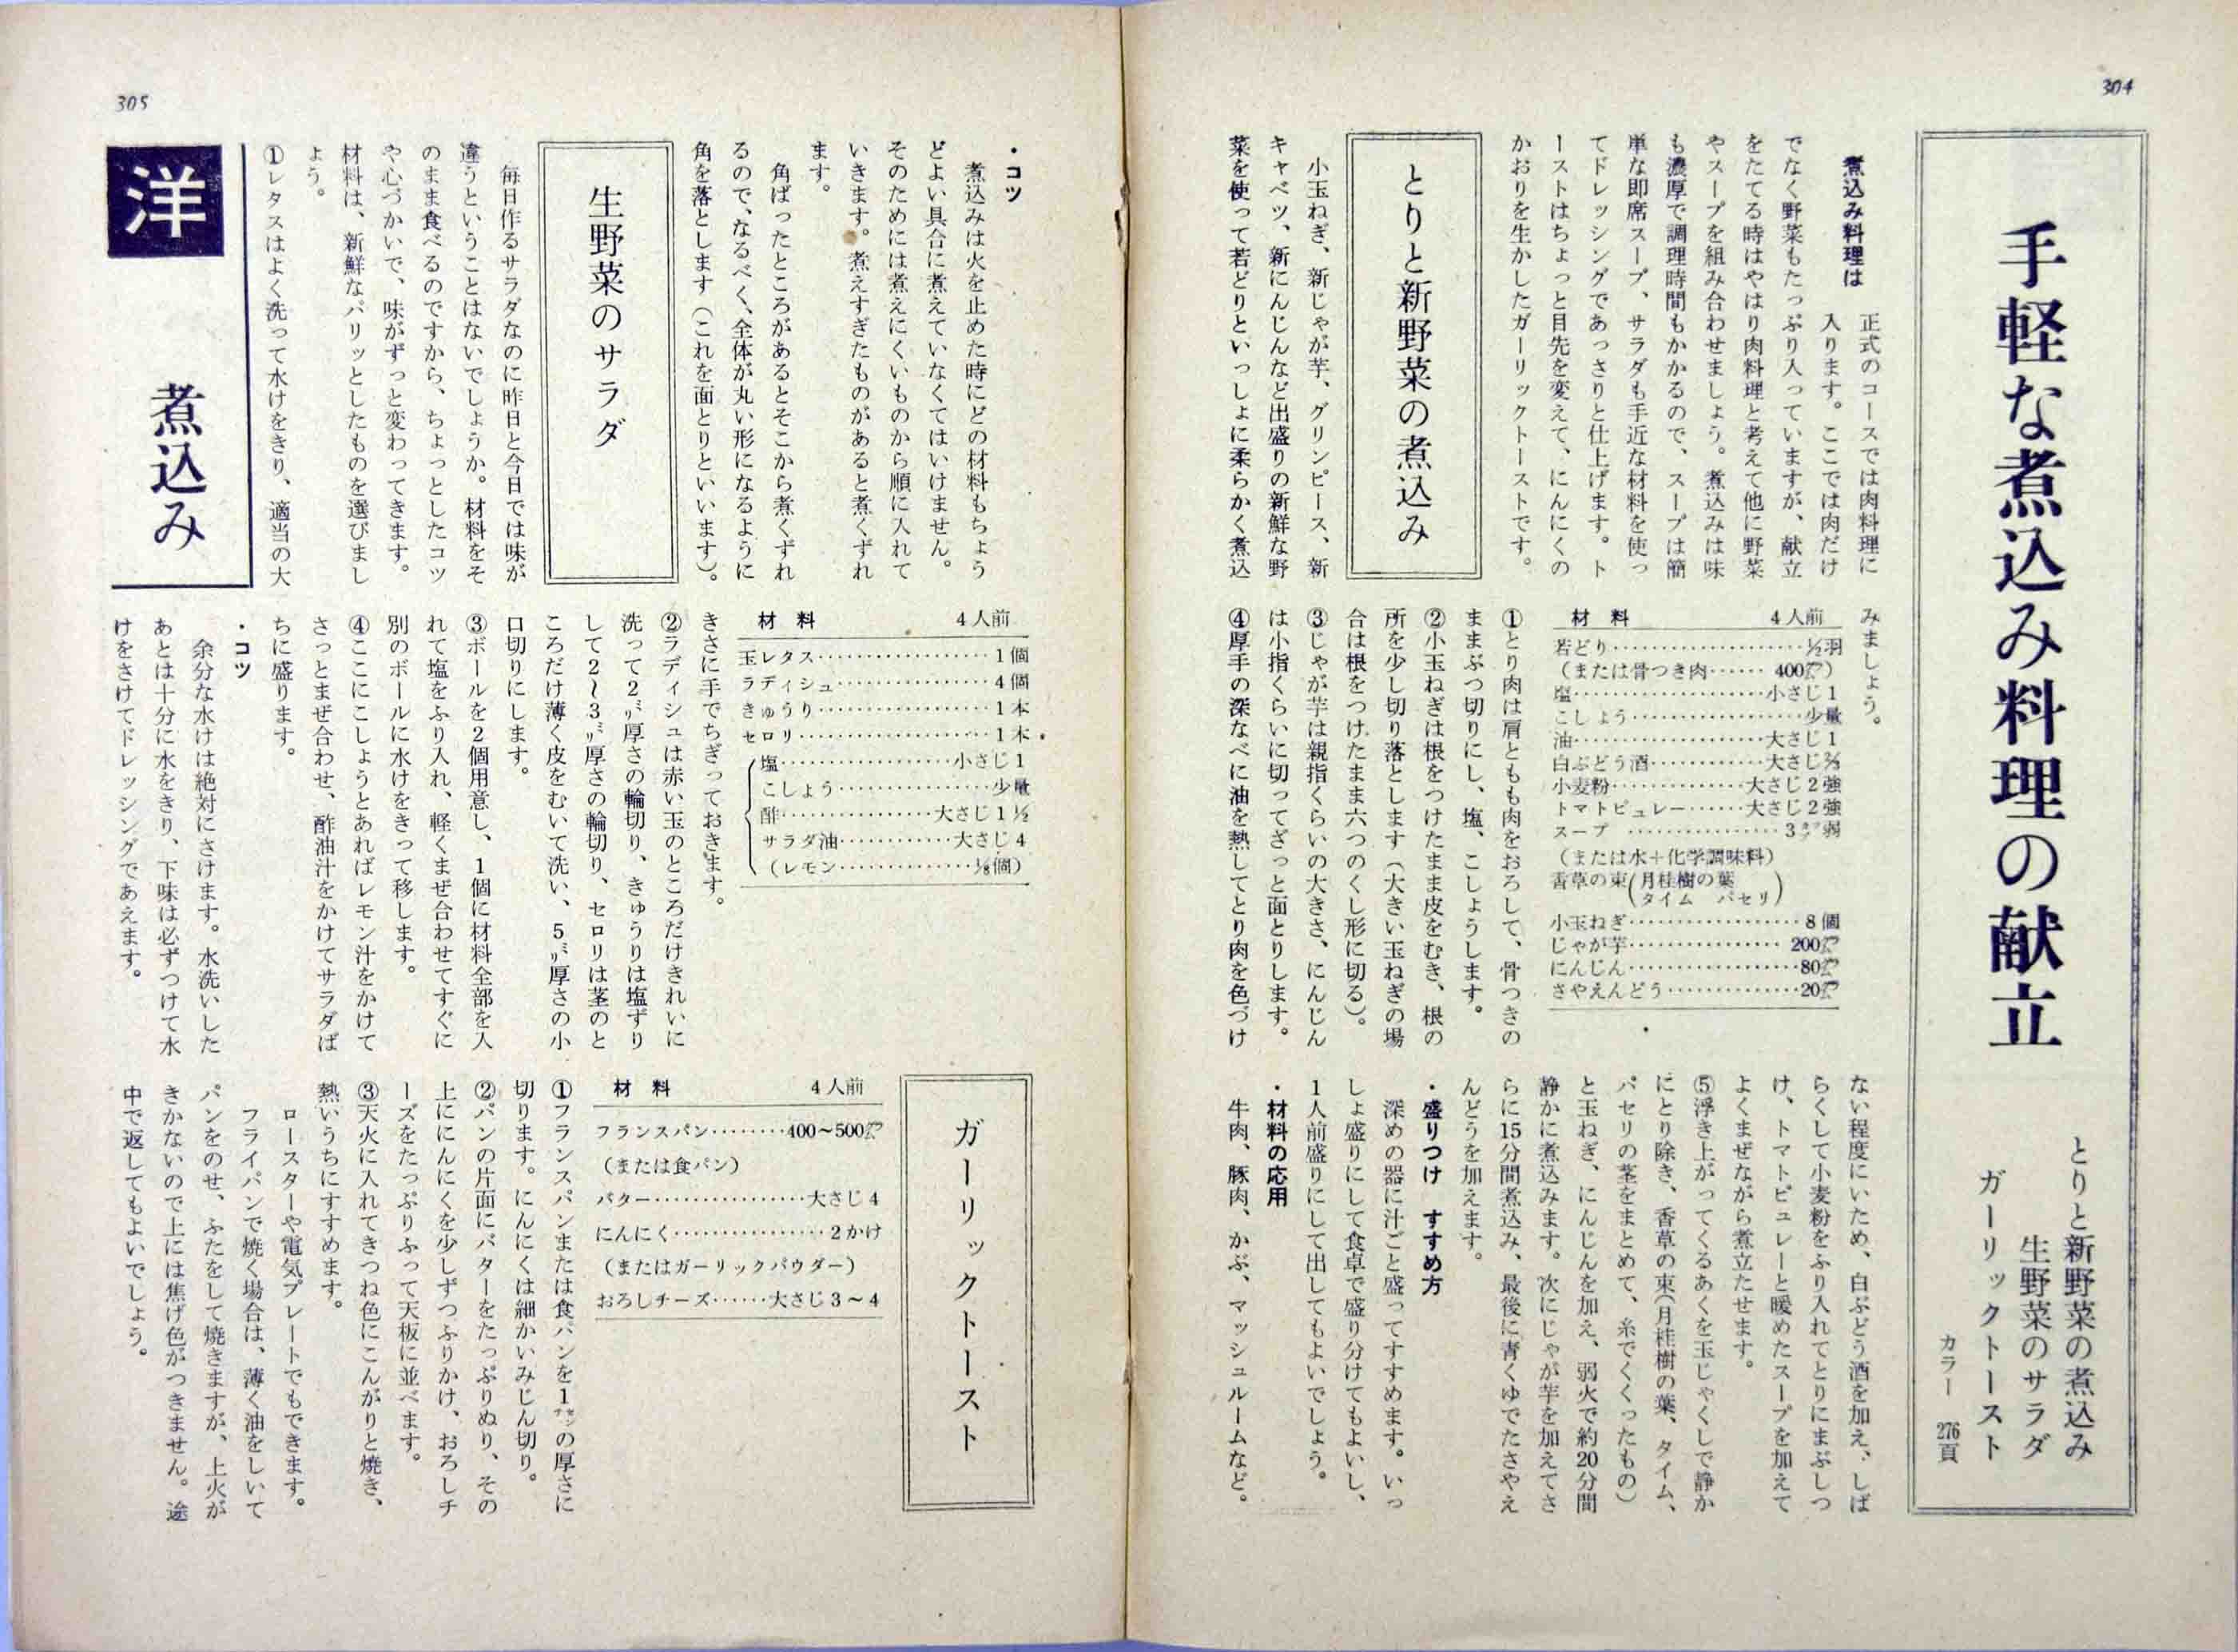 304
手軽な煮込み料理の献立
とりと新野菜の煮込み
生野菜のサラダ
ガーリックトースト
カラー 276頁
煮込み料理は
正式のコースでは肉料理に
入ります。ここでは肉だけ
でなく野菜もたっぷり入っていますが、献立
をたてる時はやはり肉料理と考えて他に野菜
やスープを組み合わせましょう。煮込みは味
も濃厚で調理時間もかかるので、スープは簡
単な即席スープ、サラダも手近な材料を使っ
てドレッシングであっさりと仕上げます。ト
ーストはちょっと目先を変えて、にんにくの
かおりを生かしたガーリックトーストです。
とりと新野菜の煮込み
小玉ねぎ、新じゃが芋、グリンピース、新
キャベツ、新にんじんなど出盛りの新鮮な野
菜を使って若どりといっしょに柔らかく煮込
みましょう。
材料 4人前
若どり…………………½羽
（または骨つき肉……400㌘）
塩…………………小さじ1
こしょう…………………少量
油…………………大さじ1
白ぶどう酒…………大さじ⅔
小麦粉……………大さじ2強
トマトピュレー……大さじ2強
スープ………………3㌍弱
（または水＋化学調味料）
香草の束（月桂樹の葉
タイム パセリ）
小玉ねぎ…………………8個
じゃが芋………………200㌘
にんじん…………………80㌘
さやえんどう……………20㌘
①とり肉は肩ともも肉をおろして、骨つきの
ままぶつ切りにし、塩、こしょうします。
②小玉ねぎは根をつけたまま皮をむき、根の
所を少し切り落とします（大きい玉ねぎの場
合は根をつけたまま六つのくし形に切る）。
③じゃが芋は親指くらいの大きさ、にんじん
は小指くらいに切ってざっと面とりします。
④厚手の深なべに油を熱してとり肉を色づけ
ない程度にいため、白ぶどう酒を加え、しば
らくして小麦粉をふり入れてとりにまぶしつ
け、トマトピュレーと暖めたスープを加えて
よくまぜながら煮立たせます。
⑤浮き上がってくるあくを玉じゃくしで静か
にとり除き、香草の束（月桂樹の葉、タイム、
パセリの茎をまとめて、糸でくくったもの）
と玉ねぎ、にんじんを加え、弱火で約20分間
静かに煮込みます。次にじゃが芋を加えてさ
らに15分間煮込み、最後に青くゆでたさやえ
んどうを加えます。
・盛りつけ すすめ方
深めの器に汁ごと盛ってすすめます。いっ
しょ盛りにして食卓で盛り分けてもよいし、
1人前盛りにして出してもよいでしょう。
・材料の応用
牛肉、豚肉、かぶ、マッシュルームなど。
305
・コツ
煮込みは火を止めた時にどの材料もちょう
どよい具合に煮えていなくてはいけません。
そのためには煮えにくいものから順に入れて
いきます。煮えすぎたものがあると煮くずれ
ます。
角ばったところがあるとそこから煮くずれ
るので、なるべく、全体が丸い形になるように
角を落とします（これを面とりといいます）。
生野菜のサラダ
毎日作るサラダなのに昨日と今日では味が
違うということはないでしょうか。材料をそ
のまま食べるのですから、ちょっとしたコツ
や心づかいで、味がずっと変わってきます。
材料は、新鮮なパリッとしたものを選びまし
ょう。
①レタスはよく洗って水けをきり、適当の大
洋
煮込み
材料 4人前
玉レタス…………………1個
ラディシュ………………4個
きゅうり…………………1本
セロリ……………………1本
塩…………………小さじ1
こしょう…………………少量
酢………………大さじ1½
サラダ油…………大さじ4
（レモン……………⅛個）
きさに手でちぎっておきます。
②ラディシュは赤い玉のところだけきれいに
洗って2㍉厚さの輪切り、きゅうりは塩ずり
して2〜3㍉厚さの輪切り、セロリは茎のと
ころだけ薄く皮をむいて洗い、5㍉厚さの小
口切りにします。
③ボールを2個用意し、1個に材料全部を入
れて塩をふり入れ、軽くまぜ合わせてすぐに
別のボールに水けをきって移します。
④ここにこしょうとあればレモン汁をかけて
さっとまぜ合わせ、酢油汁をかけてサラダば
ちに盛ります。
・コツ
余分な水けは絶対にさけます。水洗いした
あとは十分に水をきり、下味は必ずつけて水
けをさけてドレッシングであえます。
ガーリックトースト
材料 4人前
フランスパン………400～500㌘
（または食パン）
バター………………大さじ4
にんにく………………2かけ
（またはガーリックパウダー）
おろしチーズ……大さじ3～4
①フランスパンまたは食パンを1㌢の厚さに
切ります。にんにくは細かいみじん切り。
②パンの片面にバターをたっぷりぬり、その
上ににんにくを少しずつふりかけ、おろしチ
ーズをたっぷりふって天板に並べます。
③天火に入れてきつね色にこんがりと焼き、
熱いうちにすすめます。
ロースターや電気プレートでもできます。
フライパンで焼く場合は、薄く油をしいて
パンをのせ、ふたをして焼きますが、上火が
きかないので上には焦げ色がつきません。途
中で返してもよいでしょう。